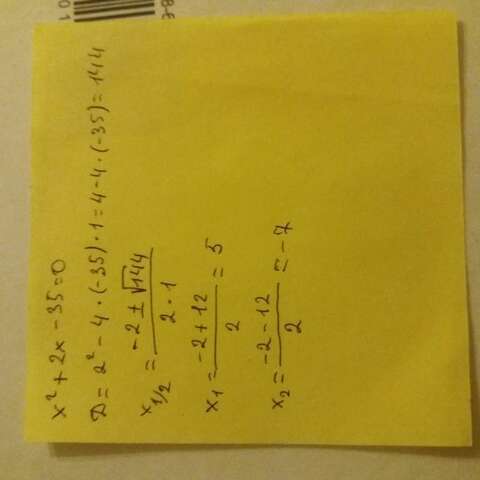 x² + 2x - 35 = 0
D = 2² - 4 · (-35) · 1 = 4 - 4 · (-35) = 144
x₁/₂ = (-2 ± √144) / (2 · 1)
x₁ = (-2 + 12) / 2 = 5
x₂ = (-2 - 12) / 2 = -7